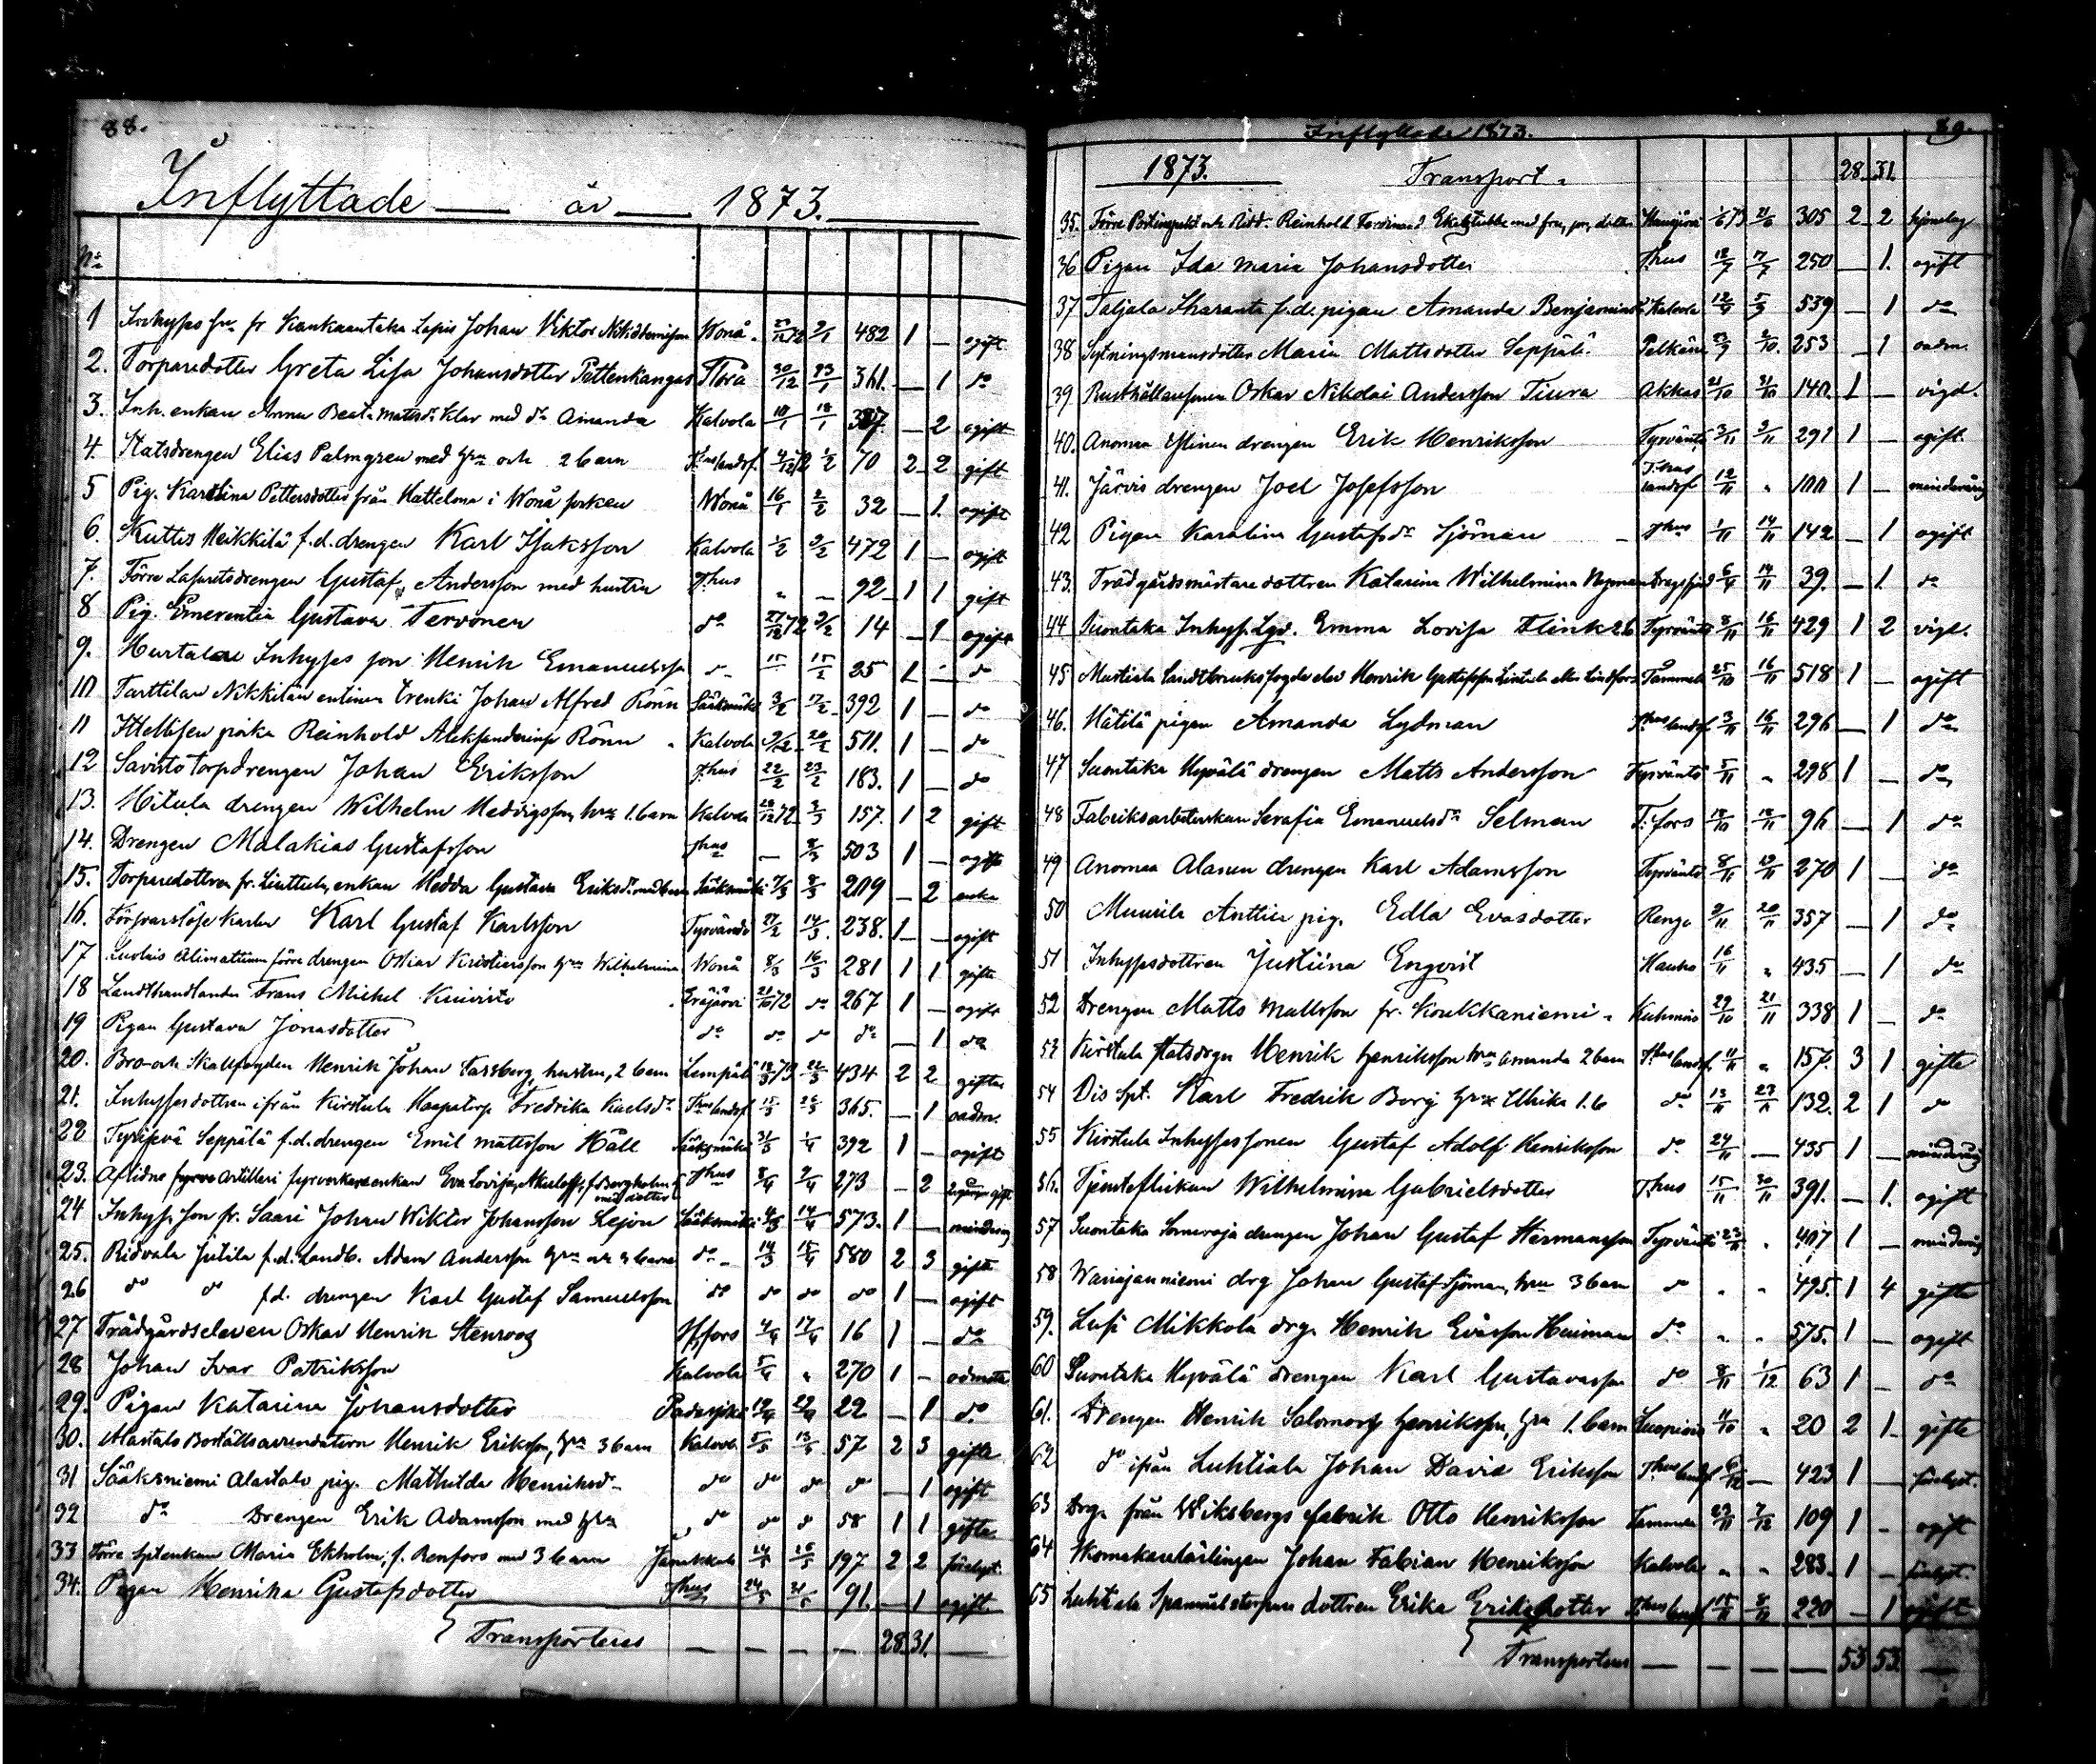 88.
Inflyttade år 1873.
No
1 Inhyses fr Johan Viktor Wonå 482 1 — ogift
2. Torparedotter Greta Lisa Johansdotter Pettenkangas 30/12 23/1 361. — 1 do
3. Inh. enkan Anna Beata Mattsdr med dr Amanda Kalvola 18/1 — 2 ogift
4. Statsdrengen Elias Palmgren med hru och 2 barn 70 2 2 gift
5 Pig. Karolina Pettersdotter från Hattelma i Wonå socken Wonå 16/1 2/2 32 — 1. ogift
6. Kuttis Heikkilä f.d. drengen Karl Isaksson Kalvola 1/2 2/2 472 1 — ogift
7. Förre Lasaretsdrengen Gustaf Andersson med hustru T.hus " — 92 1 1 gift
8 Pig. Emerentia Gustava Tervonen do 27/12 72 2/2 14 — 1 ogift
9. Inhyses son Henrik Emanuelsson 15/2 25 1 — do
10 Tarttilan Nikkilän entinen trenki Johan Alfred Rönn Sääksmäki 3/2 17/2 392 1 — do
11 poika Reinhold Rönn Kalvola 20/2 511. 1 — do
12 Savisto torpdrengen Johan Eriksson T.hus 22/2 23/2 183. 1 — do
13. Hitula drengen Wilhelm Hedvigsson, hru 1. barn Kalvola 157. 1 2 gift
14. Drengen Malakias Gustafsson Thus — 503 1 — ogift
15. Torparedottren fr. enkan Hedda Gustava Eriksdr med barn Sääksmäki 7/3 8/3 209 — 2 enka
16. Försvarslöse karlen Karl Gustaf Karlsson Tyrväntö 27/2 14/3. 238. 1 — ogift
17 förre drengen Oskar Kristiansson hru Wilhelmina Wonå 8/3 16/3 281 1 1 gifta
18 Landthandlanden Frans Michel Kuivisto Eräjärvi 21/10 72 do 267 1 — ogift
19 Pigan Gustava Jonasdotter do do do do — 1 do
20. Bro- och Skallfogden Henrik Johan Tassberg, hustru, 2 barn Lempälä 434 2 2 gifta
21. Inhysesdottren ifrån Kirstula Haapatorp Fredrika Karlsdr Thus landsf. 15/3 365. — 1 oadm.
22 Seppälä f.d. drengen Emil Mattsson Häll Sääksmäki 31/3 1/4 392 1 — ogift
23. Aflidne artilleri fyrverkareenkan Eva Lovisa f. Bergholm med dotter Thus 273 — 2
24 Inhys. son fr. Saari Johan Wiktor Johansson Lejon Sääksmäki 14/4 573. 1 — minderårig
25. Ridvala Jutila f.d. Landb. Adam Andersson hru och 3 barn do 14/3 15/4 580 2 3 gifta
26 do do f.d. drengen Karl Gustaf Samuelsson do do do do 1 — ogift
27 Trädgårdseleven Oskar Henrik Stenroos H.fors 4/4 17/4 16 1 — do
28 Johan Ivar Patriksson Kalvola 5/4 " 270 1 —
29. Pigan Katarina Johansdotter Padasjoki 22 — 1 do
30. Alastalo Boställsarrendatorn Henrik Eriksson, hru 3 barn Kalvola 5/5 13/5 57 2 3 gifta
31 Sääksniemi Alastalo pig. Mathilda Henriksdr do do do do — 1 ogift
32 do Drengen Erik Adamsson med hru do do do 58 1 1 gifta
33 Förre Maria Ekholm, f. Renfors med 3 barn Janakkala 197 2 2
34. Pigan Henrika Gustafsdotter Thus 24/5 31/5 91. — 1 ogift
Transporteras — — — — 28. 31. —
Inflyttade 1873. 89.
1873. Transport 28. 31.
35. Förre Postinspekt. och Ridd. Reinhold Ferdinand med fru, son, dotter Hausjärvi 305 2 2
36 Pigan Ida Maria Johansdotter T.hus 250 — 1. ogift
37 f.d. pigan Amanda Kalvola 539 — 1 do
38 Sytningsmansdotter Maria Mattsdotter Seppälä Pelkäne 2/10. 253 — 1 oadm.
39 Rusthållaresonen Oskar Nikolai Andersson Tiura Akkas 21/10 31/10 140. 1 — vigd.
40. Anomaa drengen Erik Henriksson Tyrväntö 3/11 9/11 291 1 — ogift
41. Järvis drengen Joel Josefsson T.hus landsf 12/11 " 100 1 — minderårig
42 Pigan Karolina Gustafsdr Sjöman Thus 1/11 14/11 142 — 1 ogift
43. Trädgårdsmästaredottren Katarina Wilhelmina Nyman 14/11 39. — 1. do
44 Suontaka Inhyss. Emma Lovisa Flink 2 b Tyrväntö 3/11 16/11 429 1 2 vigd.
45 Mustiala Landtbruksfogde elev Henrik Gustafsson Tammela 25/10 16/11 518 1 — ogift
46. Hätilä pigan Amanda Lydman Thus landsf 3/11 16/11 296 — 1 do
47 Suontaka Hyvälä drengen Matts Andersson Tyrväntö 5/11 " 298 1 — do
48 Fabriksarbeterskan Serafia Emanuelsdr Selman T.fors 18/10 18/11 96 — 1 do
49 Anomaa Alanen drengen Karl Adamsson Tyrväntö 8/11 19/11 270 1 — do
50 Muurila Anttila pig. Edla Evasdotter Renge 9/11 20/11 357 — 1 do
51 Inhysesdottren Justiina Enqvist Hauho 16/11 " 435 — 1 do
52 Drengen Matts Mattsson fr. Koukkaniemi Kuhmois 29/10 21/11 338 1 — do
53 Kirstula statsdrgn Henrik Henriksson hru Amanda 2 barn Thus landsf. 11/11 " 157. 3 1 gifta
54 Dis Spt. Karl Fredrik Borg hru Ulrika 1. b do 13/11 23/11 132. 2 1 do
55 Kirstula Inhysessonen Gustaf Adolf Henriksson do 24/11 — 435 1 — minderårig
56. Tjensteflickan Wilhelmina Gabrielsdotter T.hus 15/11 30/11 391. — 1. ogift
57 Suontaka Someroja drengen Johan Gustaf Hermansson Tyrväntö 23/11 " 407 1 — minderårig
58 drg Johan Gustaf Sjöman, hru 3 barn do " " 495. 1 4 gifta
59. Lusi Mikkola drgn Henrik Evasson do " " 575. 1 — ogift
60 Suontaka Hyvälä drengen Karl Gustavsson do 8/11 1/12 63 1 — do
61. Drengen Henrik Salomon Henriksson, hru 1. barn 11/10 " 20 2 1 gifta
62 do ifrån Luhtiala Johan David Eriksson Thus landsf 6/12 — 423 1 —
63 Drgn från Wiksbergs fabrik Otto Henriksson Tammela 23/11 7/12 109 1 — ogift
64 Skomakarelärlingen Johan Fabian Henriksson Kalvola " " 283. 1 —
65 Luhtiala dottren Erika Eriksdotter Thus landsf 220 — 1 ogift
Transporteras — — — — 53 53. —